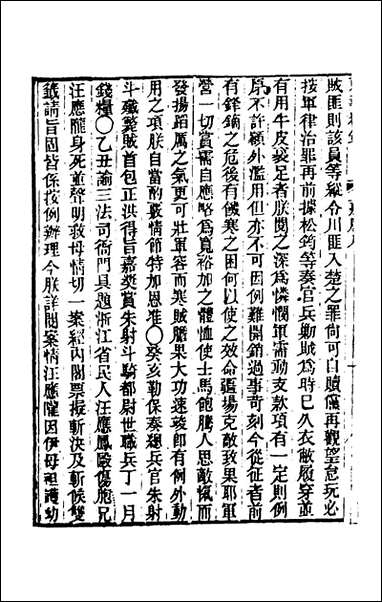 賊匪則該員等縱令川匪入楚之罪尙可自贖儻再觀望怠玩必
按軍律治罪再前據松筠等奏官兵勦賊爲時已久衣敝履穿並
有用牛皮裹足者朕聞之深爲憐憫軍需動支款項有一定則例
原不許額外濫用但亦不可因例難開銷過事苛刻今從征者前
有鋒鏑之危後有饑寒之困何以使之效命疆場克敵致果耶軍
營一切賞需自應略爲寬裕加之體恤使士馬飽騰人思敵愾而
發揚蹈厲之氣更可壯軍容而寒賊膽果大功速竣卽有例外動
用之項朕自當酌覈情節特加恩准〇癸亥勒保奏總兵官朱射
斗殲斃賊首包正洪得旨嘉奬賞朱射斗騎都尉世職兵丁一月
錢糧〇乙丑諭三法司衙門具題浙江省民人汪應鳳毆傷胞兄
汪應隴身死並聲明救母情切一案經內閣票擬斬決及斬候雙
籤請旨固皆係按例辦理今朕詳閱案情汪應隴因伊母祖護幼